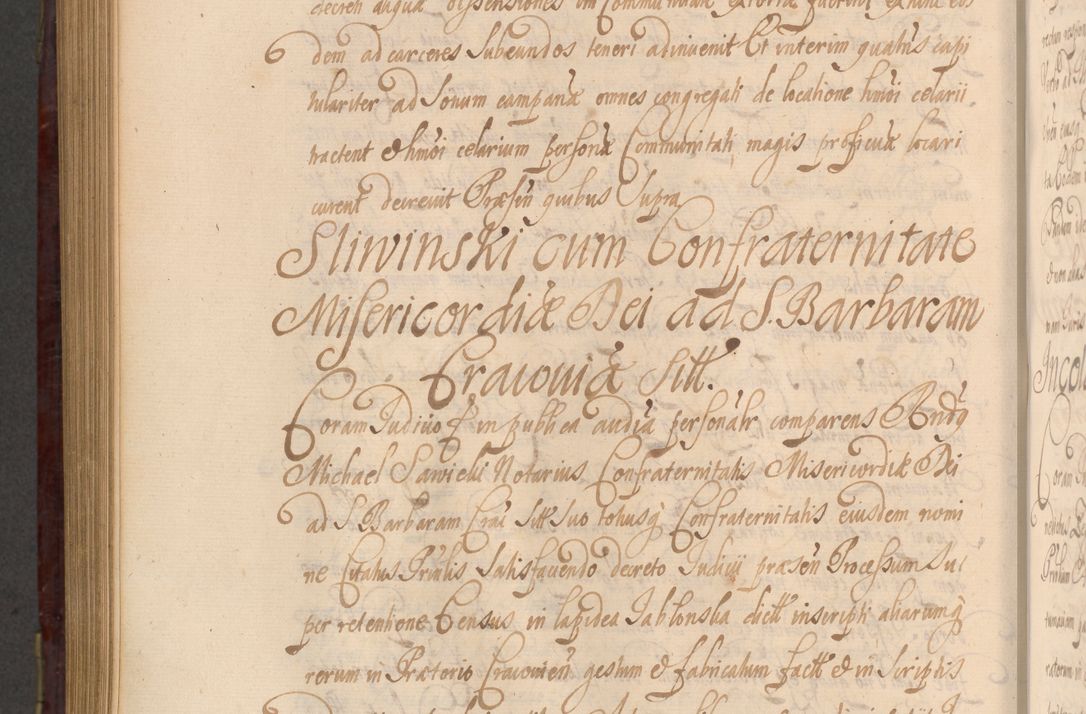 decreti aliquæ dissensiones in Communitate exortæ fuerint ex nunc eos
dem ad carceres subeundos teneri adinvenit Et interim quatus capi
tulariter ad sonum campanæ omnes congregati de locatione hmoi celarii
tractent & hmoi celarium personæ Communitati magis proficuæ locari
curent decrevit Præsen quibus Supra
Sliwinski cum Confraternitate
Misericordiæ Dei ad S. Barbaram
Cracoviæ Sitt.
Coram Judicio in publica audia personalr comparens Rndg
Michael Sawicki Notarius Confraternitatis Misericordiæ Dei
ad S Barbaram Crac Sitt suo totiusq Confraternitatis eiusdem nomi
ne Citatus Prnlis satisfaciendo decreto Judicii præsen Processum su
per retentione Census in lapidea Jablonska dictt inscripti aliarumq
rerum in Prætorio Cracovien gestum & fabricatum factt & in scriptis